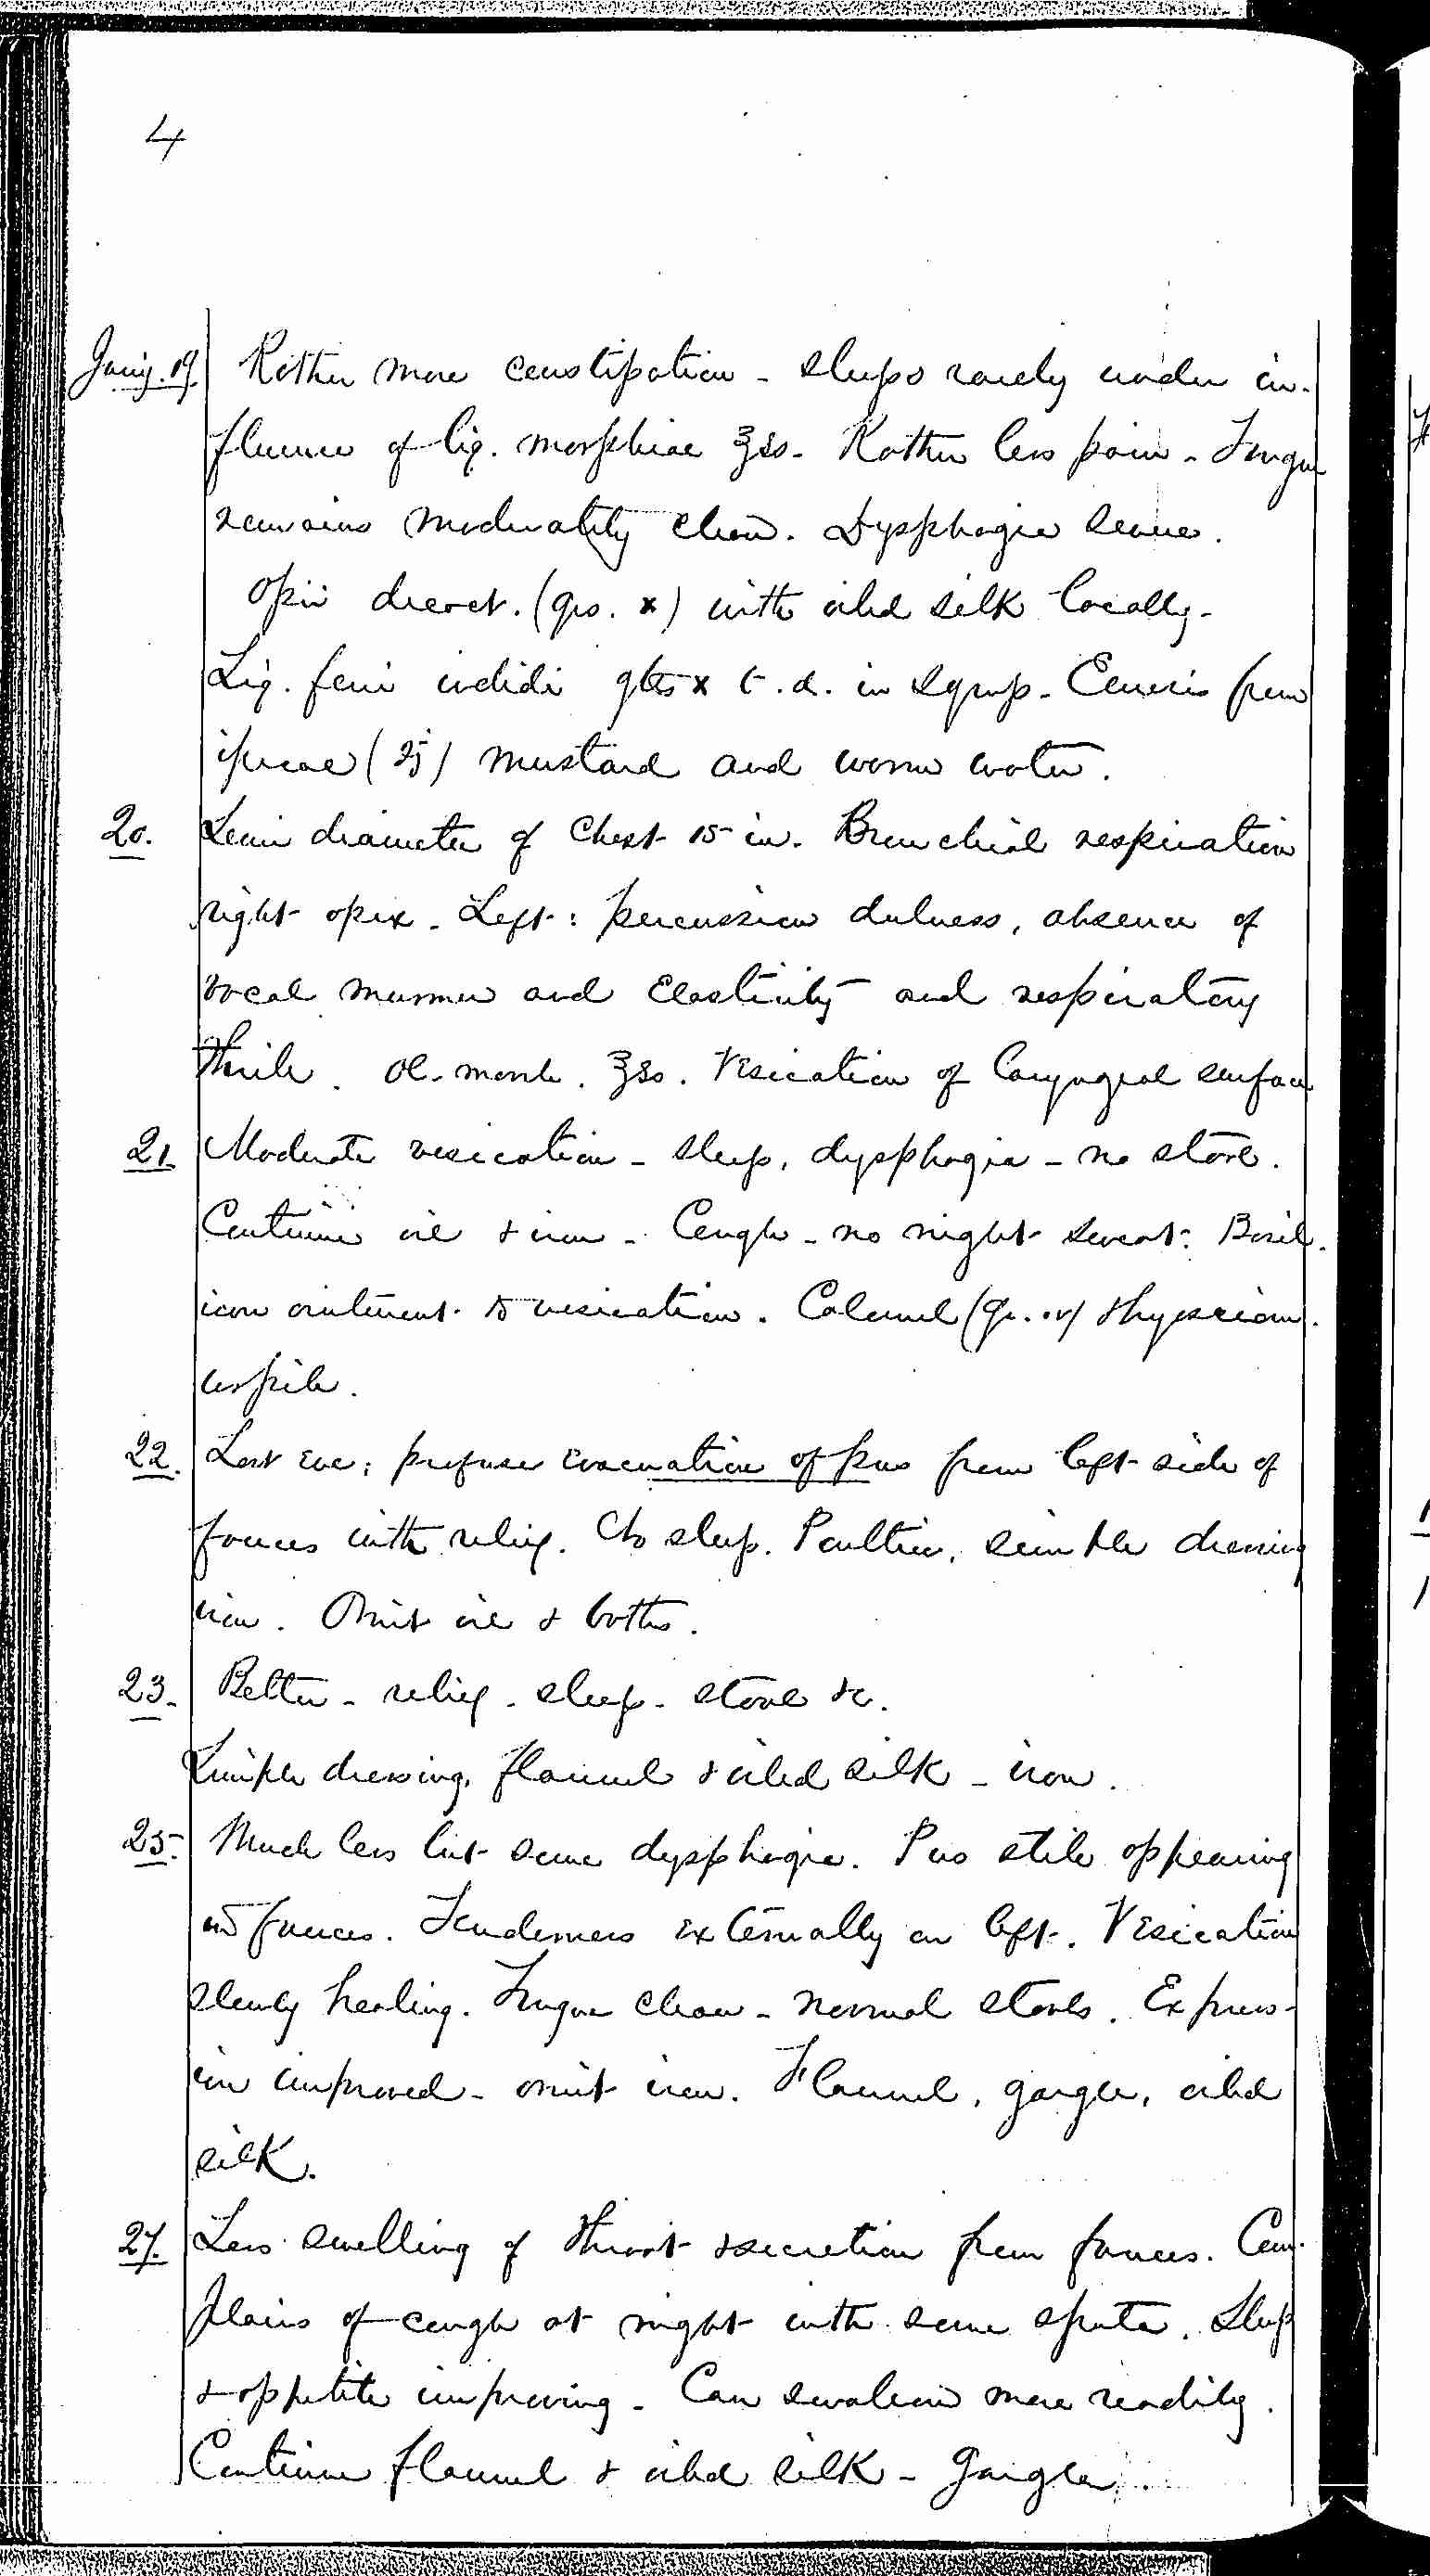 4
Jany. 19. Rather more constipation - sleeps rarely under in-
fluence of liq. morphiae ʒss. Rather less pain - Tongue
remains moderately clean. Dysphagia same.
Opii deodt. (grs. x) with oiled silk locally.
Liq. ferri iodidi gtts x t.d. in syrup. Emesis from
ipecac (ʒj) mustard and warm water.
20. Semi diameter of chest 15 in. Bronchial respiration
right apex. Left: percussion dulness, absence of
vocal murmur and elasticity and respiratory
thrill. Ol. morrh. ʒss. Vesication of laryngeal surface
21 Moderate vesication - sleep, dysphagia - no stool.
Continue oil & iron - Cough - no night sweat. Basil-
icon ointment to vesication. Calomel (gr. iv) & hyosciam.
as pill.
22. Last eve; profuse evacuation of pus from left side of
fauces with relief. & to sleep. Poultice, simple dressing
iron. Omit oil & baths.
23. Better - relief - sleep - stool &c.
Simple dressing, flannel & oiled silk - iron.
25. Much less but some dysphagia. Pus still appearing
in fauces. Tenderness externally on left. Vesication
slowly healing. Tongue clean - normal stools. Express-
ion improved - omit iron. Flannel, gargle, oiled
silk.
27. Less swelling of throat & secretion from fauces. Com-
plains of cough at night with some sputa. Sleep
& appetite improving - Can swallow more readily.
Continue flannel & oiled silk - Gargle.